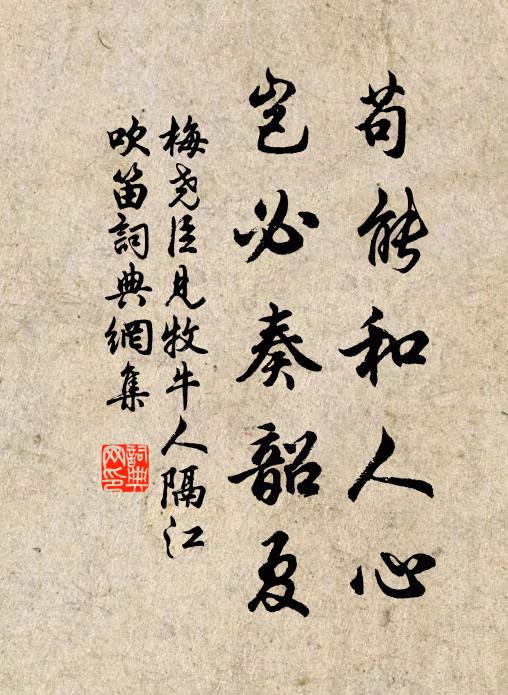 苟能和人心
豈必奏韶夏
梅堯臣見牧牛人隔江
吹笛詞典網集
詞典
网印